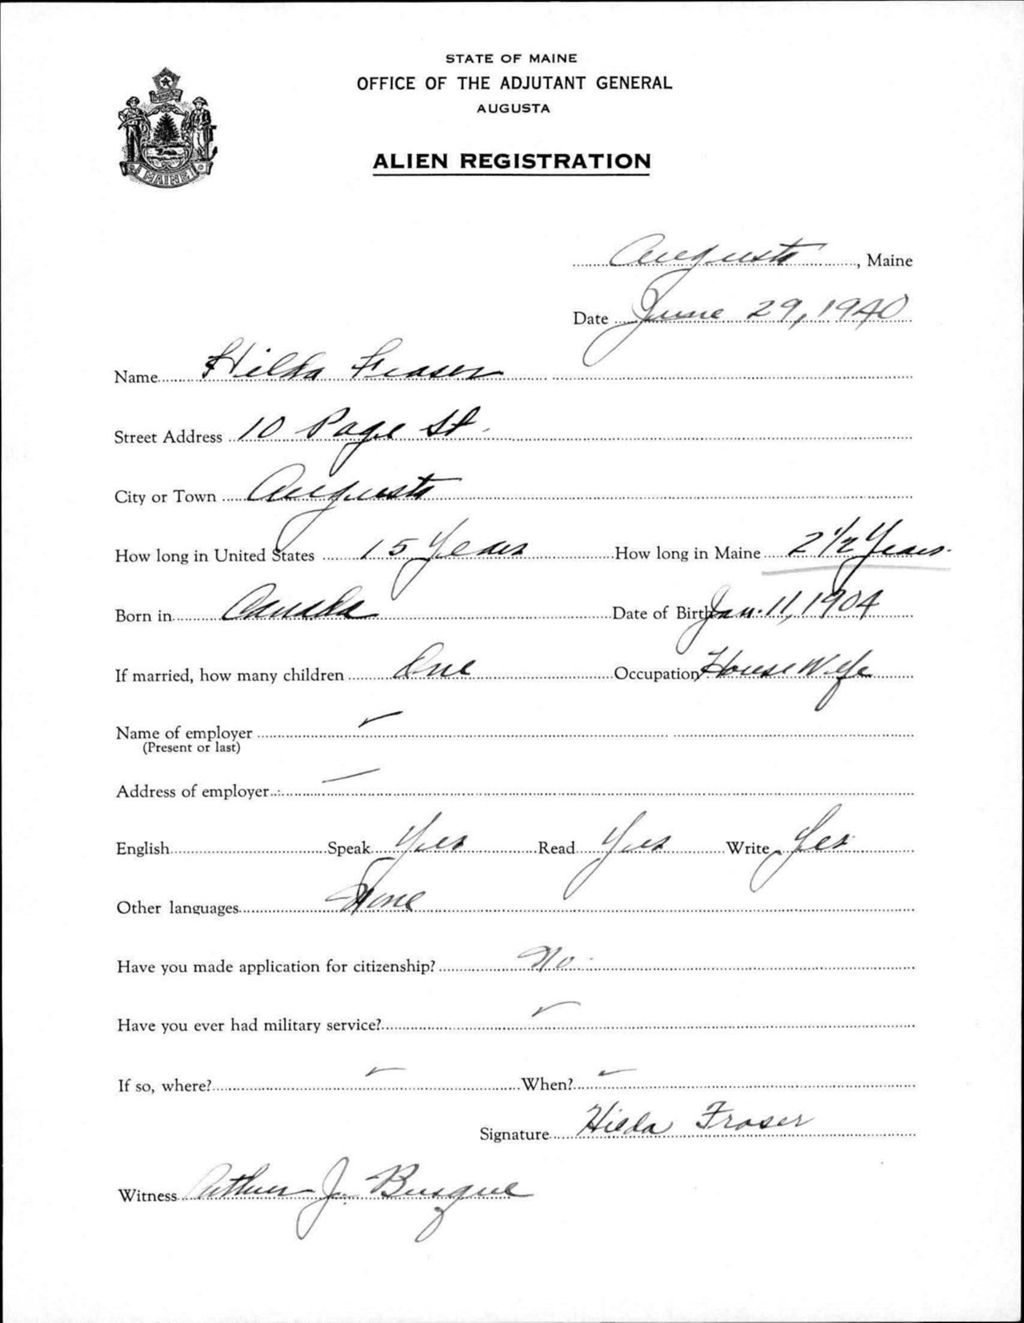 STATE OF MAINE
OFFICE OF THE ADJUTANT GENERAL
AUGUSTA
ALIEN REGISTRATION
MAINE
Augusta, Maine
Date June 29, 1940
Name Hilda Fraser
Street Address 10 Page St.
City or Town Augusta
How long in United States 15 Years How long in Maine 2 1/2 Years.
Born in Canada Date of Birth Jan. 11, 1904
If married, how many children One Occupation House Wife
Name of employer
(Present or last)
Address of employer
English Speak Yes Read Yes Write Yes
Other languages None
Have you made application for citizenship? No.
Have you ever had military service?
If so, where? When?
Signature Hilda Fraser
Witness Arthur J. Busque